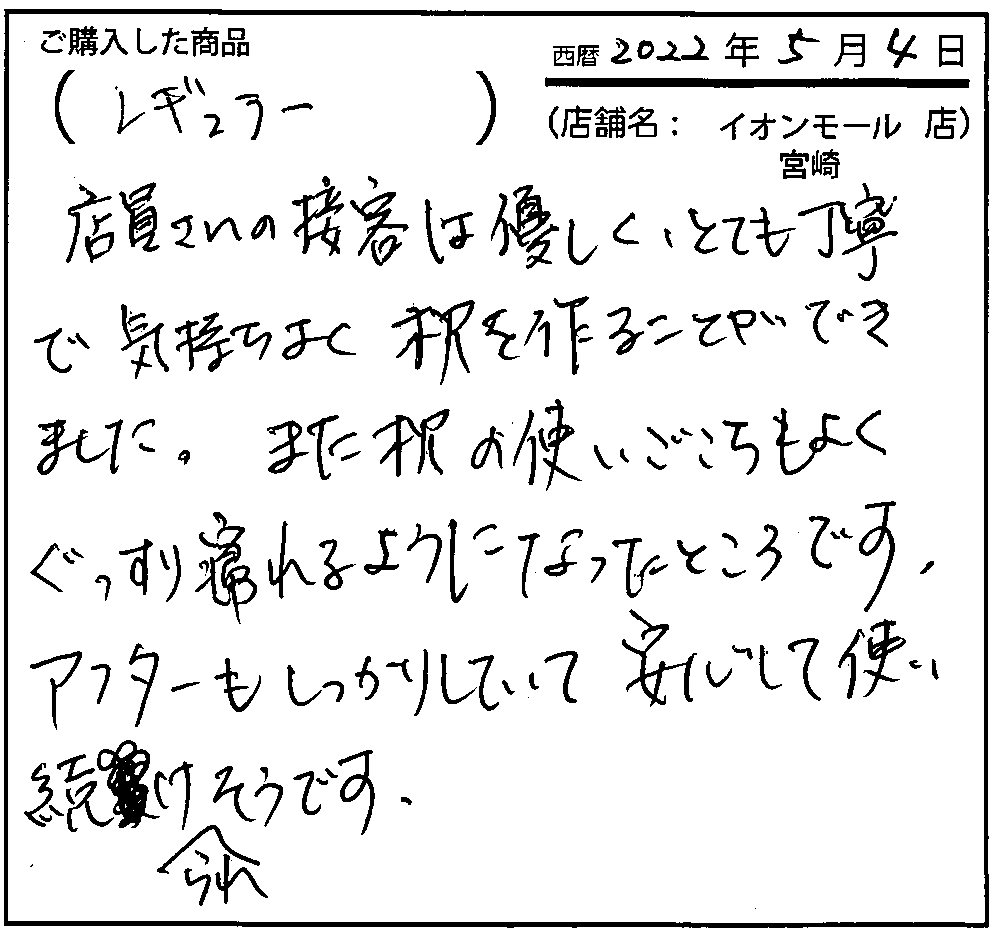 ご購入した商品
西暦 2022 年 5 月 4 日
( レギュラー )
(店舗名： イオンモール 店)
宮崎
店員さんの接客は優しく、とても丁寧
で気持ちよく枕を作ることができ
ました。また枕の使いごこちもよく
ぐっすり寝れるようになったところです。
アフターもしっかりしていて安心して使い
続けそうです。
られ